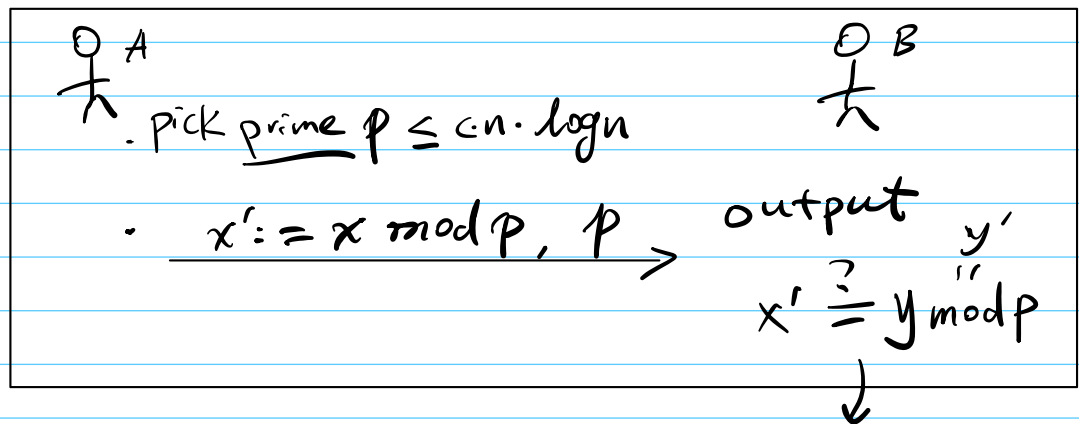 A
B
. pick prime p ≤ c·n·logn
· x' := x mod p, p
output
y'
"
x' ?= y mod p